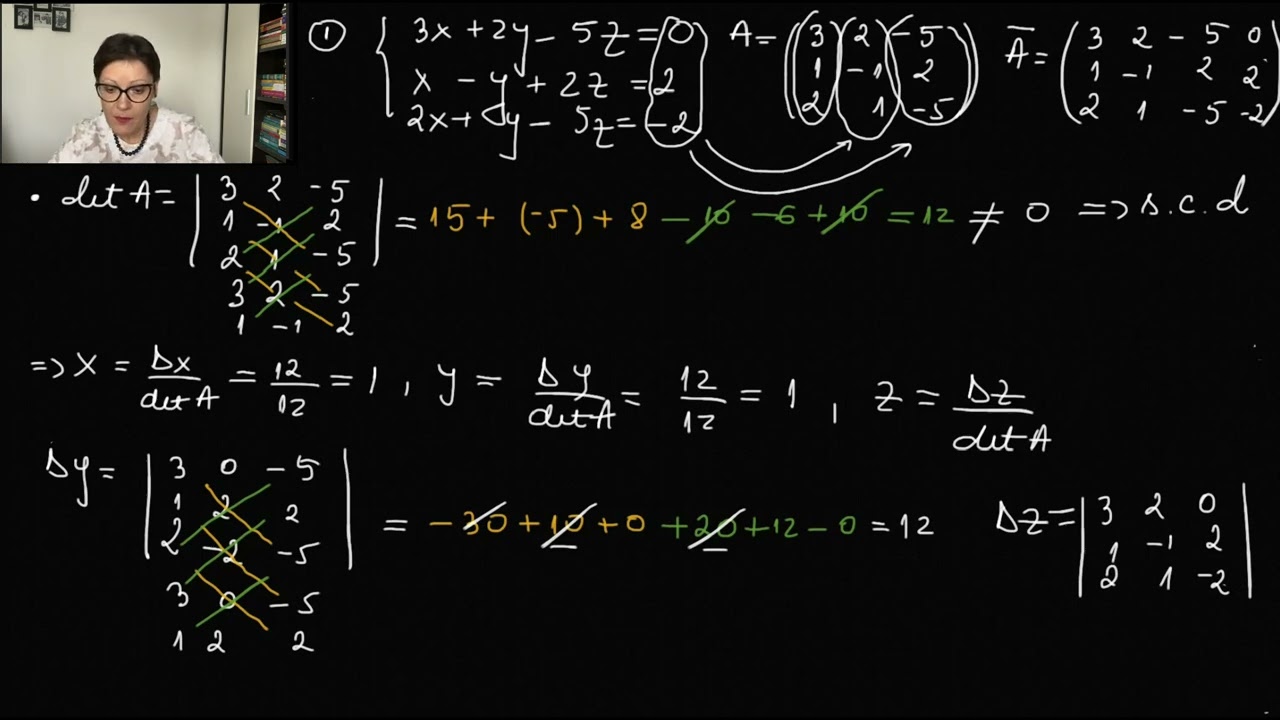 ① { 3x + 2y - 5z = 0   A = ( 3 2 -5   Ā = ( 3 2 -5 0
x - y + 2z = 2   1 -1 2   1 -1 2 2
2x + y - 5z = -2   2 1 -5 )   2 1 -5 -2 )
• det A = | 3 2 -5
1 -1 2 | = 15 + (-5) + 8 - 10 - 6 + 10 = 12 ≠ 0 => s.c.d
2 1 -5 |
3 2 -5
1 -1 2
=> x = Δx/det A = 12/12 = 1 , y = Δy/det A = 12/12 = 1 , z = Δz/det A
Δy = | 3 0 -5
1 2 2
2 -2 -5 | = -30 + 10 + 0 + 20 + 12 - 0 = 12
3 0 -5
1 2 2
Δz = | 3 2 0
1 -1 2
2 1 -2 |